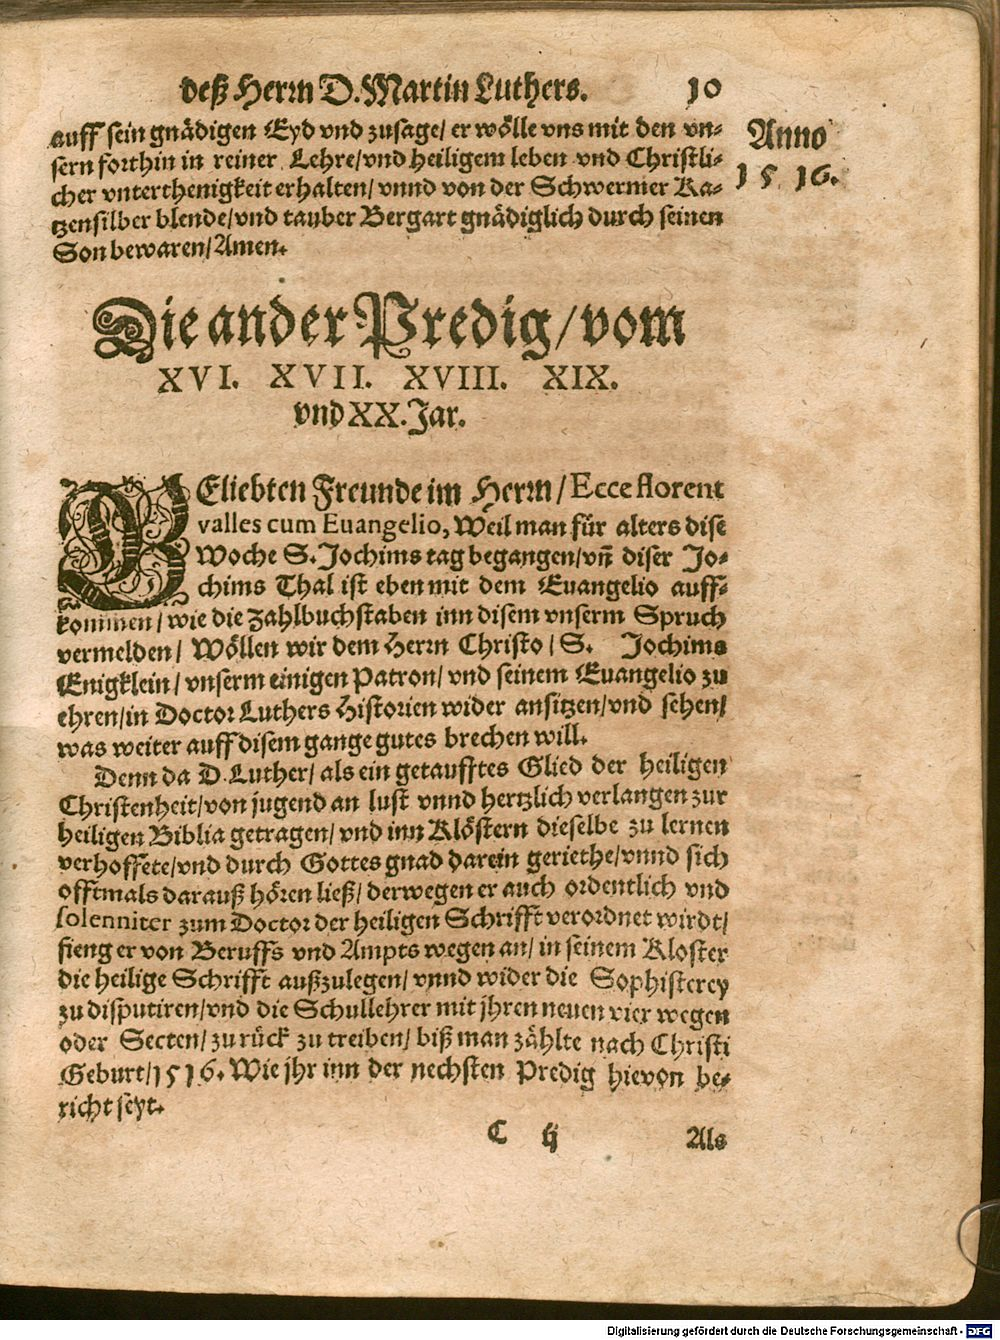 deß Herrn D. Martin Luthers. 10
Anno
1516.
auff sein gnädigen Eyd vnd zusage/ er wölle vns mit den vn⸗
sern forthin in reiner Lehre/ vnd heiligem leben vnd Christli⸗
cher vnterthenigkeit erhalten/ vnnd von der Schwermer Ka⸗
tzensilber blende/ vnd tauber Bergart gnädiglich durch seinen
Son bewaren/ Amen.
Die ander Predig/ vom
XVI. XVII. XVIII. XIX.
vnd XX. Jar.
GEliebten Freunde im Herrn/ Ecce florent
valles cum Euangelio, Weil man für alters dise
Woche S. Jochims tag begangen/ vn̄ diser Jo⸗
chims Thal ist eben mit dem Euangelio auff⸗
kommen/ wie die Zahlbuchstaben inn disem vnserm Spruch
vermelden/ Wöllen wir dem Herrn Christo/ S. Jochims
Enigklein/ vnserm einigen Patron/ vnd seinem Euangelio zu
ehren/ in Doctor Luthers Historien wider ansitzen/ vnd sehen/
was weiter auff disem gange gutes brechen will.
Denn da D. Luther/ als ein getaufftes Glied der heiligen
Christenheit/ von jugend an lust vnnd hertzlich verlangen zur
heiligen Biblia getragen/ vnd inn Klöstern dieselbe zu lernen
verhoffete/ vnd durch Gottes gnad darein geriethe/ vnnd sich
offtmals darauß hören ließ/ derwegen er auch ordentlich vnd
solenniter zum Doctor der heiligen Schrifft verordnet wirdt/
fieng er von Beruffs vnd Ampts wegen an/ in seinem Kloster
die heilige Schrifft außzulegen/ vnnd wider die Sophisterey
zu disputiren/ vnd die Schullehrer mit jhren neuen vier wegen
oder Secten/ zu rück zu treiben/ biß man zählte nach Christi
Geburt/ 1516. Wie jhr inn der nechsten Predig hievon be⸗
richt seyt.
C ij Als
Digitalisierung gefördert durch die Deutsche Forschungsgemeinschaft - DFG